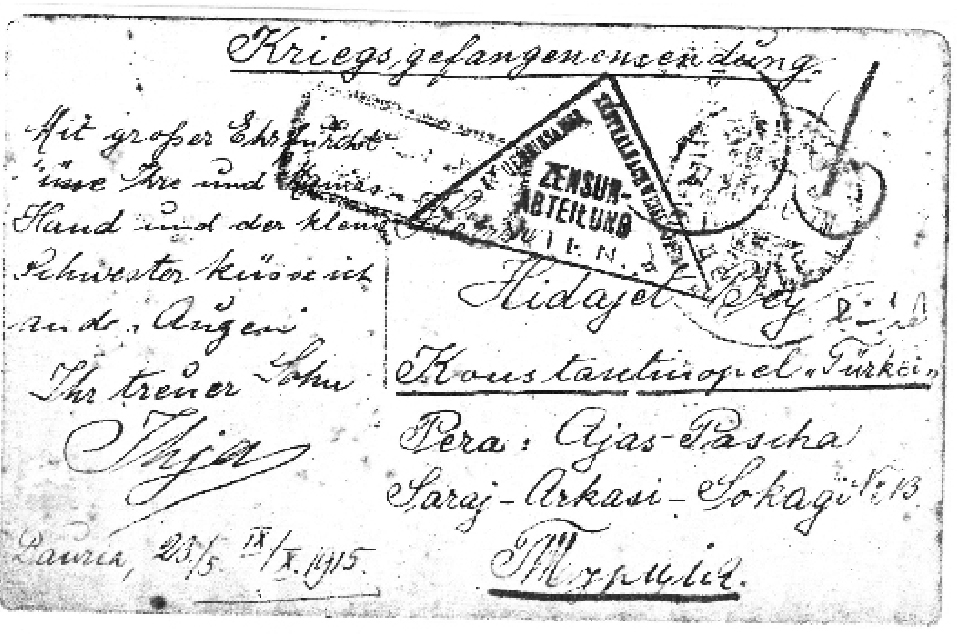 Kriegsgefangenensendung.
Mit großer Ehrfurcht
küsse Ihre und
Hand und der kleine
Schwester küsse ich
ande. Augen
Ihr treuer Sohn
Ihja
Dauria, 25./5. IX/X. 1915.
ZENSUR-
ABTEILUNG
Hidajet Bey
Konstantinopel „Türkei“
Pera: Ajas-Pascha
Saraj-Arkasi-Sokagi № 13.
Турція.